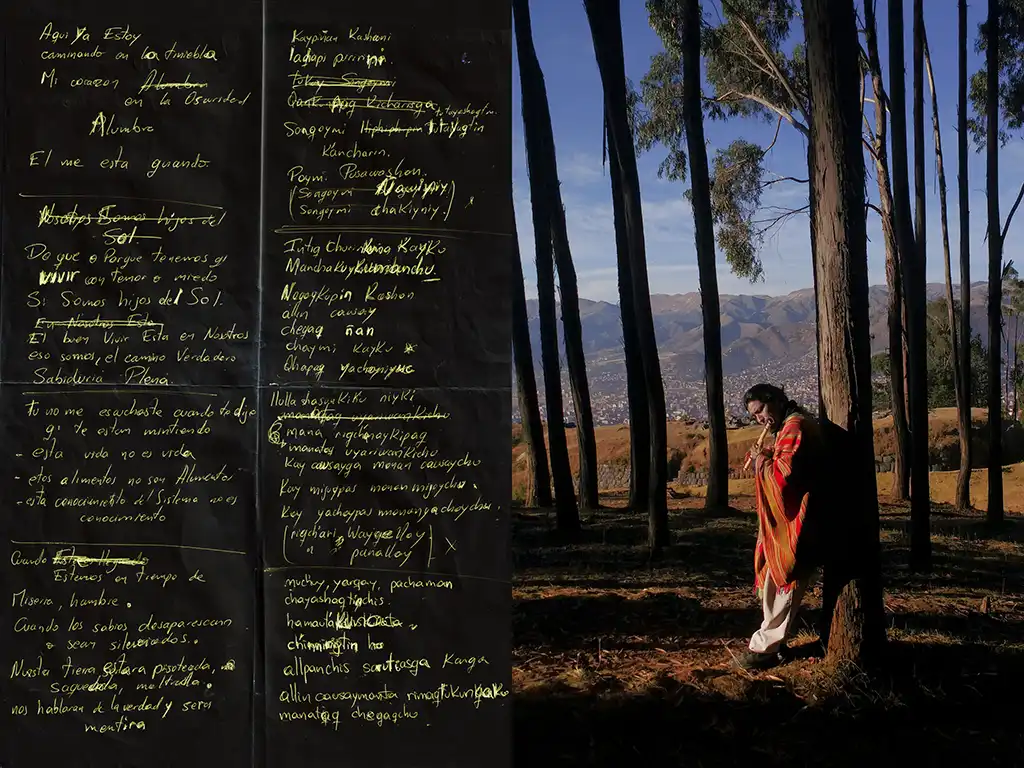 Aqui Ya Estoy
caminando en la tiniebla
Mi corazon Alumbra
en la Oscuridad
Alumbra
El me esta guiando.
Nosotros Somos hijos del
Sol
De que o Porque tenemos q'
vivir con temor o miedo
Si Somos hijos del Sol.
En Nosotros Esta
El buen Vivir Esta en Nosotros
eso somos, el camino Verdadero
Sabiduria Plena.
tu no me escuchaste cuando te dije
q' te estan mintiendo
- esta vida no es vida
- estos alimentos no son Alimentos
- este conocimiento del Sistema no es
conocimiento
Cuando
Estemos en tiempo de
Miseria, hambre.
Cuando los sabios desaparescan
o sean silenciados.
Nuestra tierra estara pisoteada,
Saqueada, maltrada.
nos hablaran de la verdad y sera
mentira
Kaypiñan Kashani
purini.
Tukuy Songoymi
Qank Kicharisqa
Songoymi tutayaqtin
Kancharin.
Paymi Pusawashan.
(Songoymi Ñawiyniy)
(Songoymi chakiyniy.)
Intiq Churin Kayku
Manchakuy
Noqaykupin Kashan
allin causay
cheqaq ñan
chaymi Kayku
Qhapaq yachayniyuc
llulla niyki
manataq uyariwankichu
mana rigchanaykipaq
manataq uyariwankichu
Kay causayqa manan causaychu
Kay mijuypas manan mijuychu.
Kay yachaypas manan yachaychu.
(rigchari Wayqellay
" panallay) x
muchuy, yarqay, pachaman
chayashaqtinchis.
hamauta
chinninqtin
allpanchis saruchasqa Kanqa
allin causaymanta
manataq cheqaqchu.